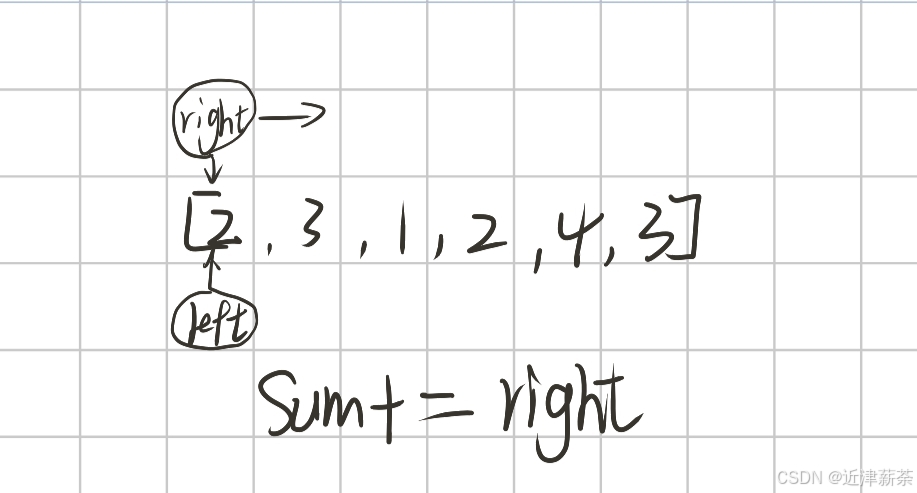 right
[2, 3, 1, 2, 4, 3]
left
Sum+=right
CSDN @近津薪荼